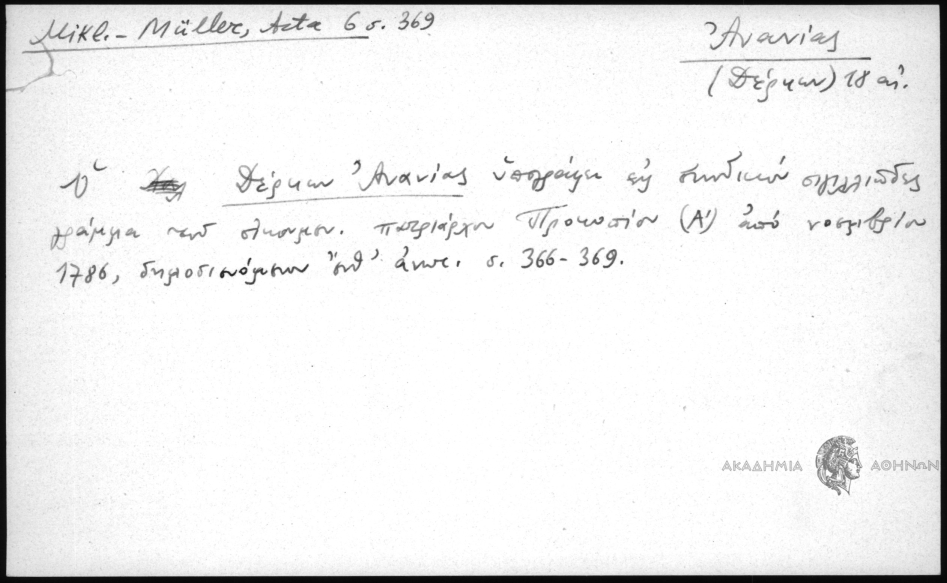 Mikl.- Müller, Acta 6 σ. 369
Ἀνανίας
(Δέρκων) 18 αἰ.
Ὁ Δέρκων Ἀνανίας ὑπογράφει εἰς συνοδικόν σιγιλλιῶδες
γράμμα τοῦ οἰκουμεν. πατριάρχου Προκοπίου (Α') ἀπό νοεμβρίου
1786, δημοσιευόμενον ἔνθ' ἀνωτ. σ. 366-369.
ΑΚΑΔΗΜΙΑ ΑΘΗΝΩΝ